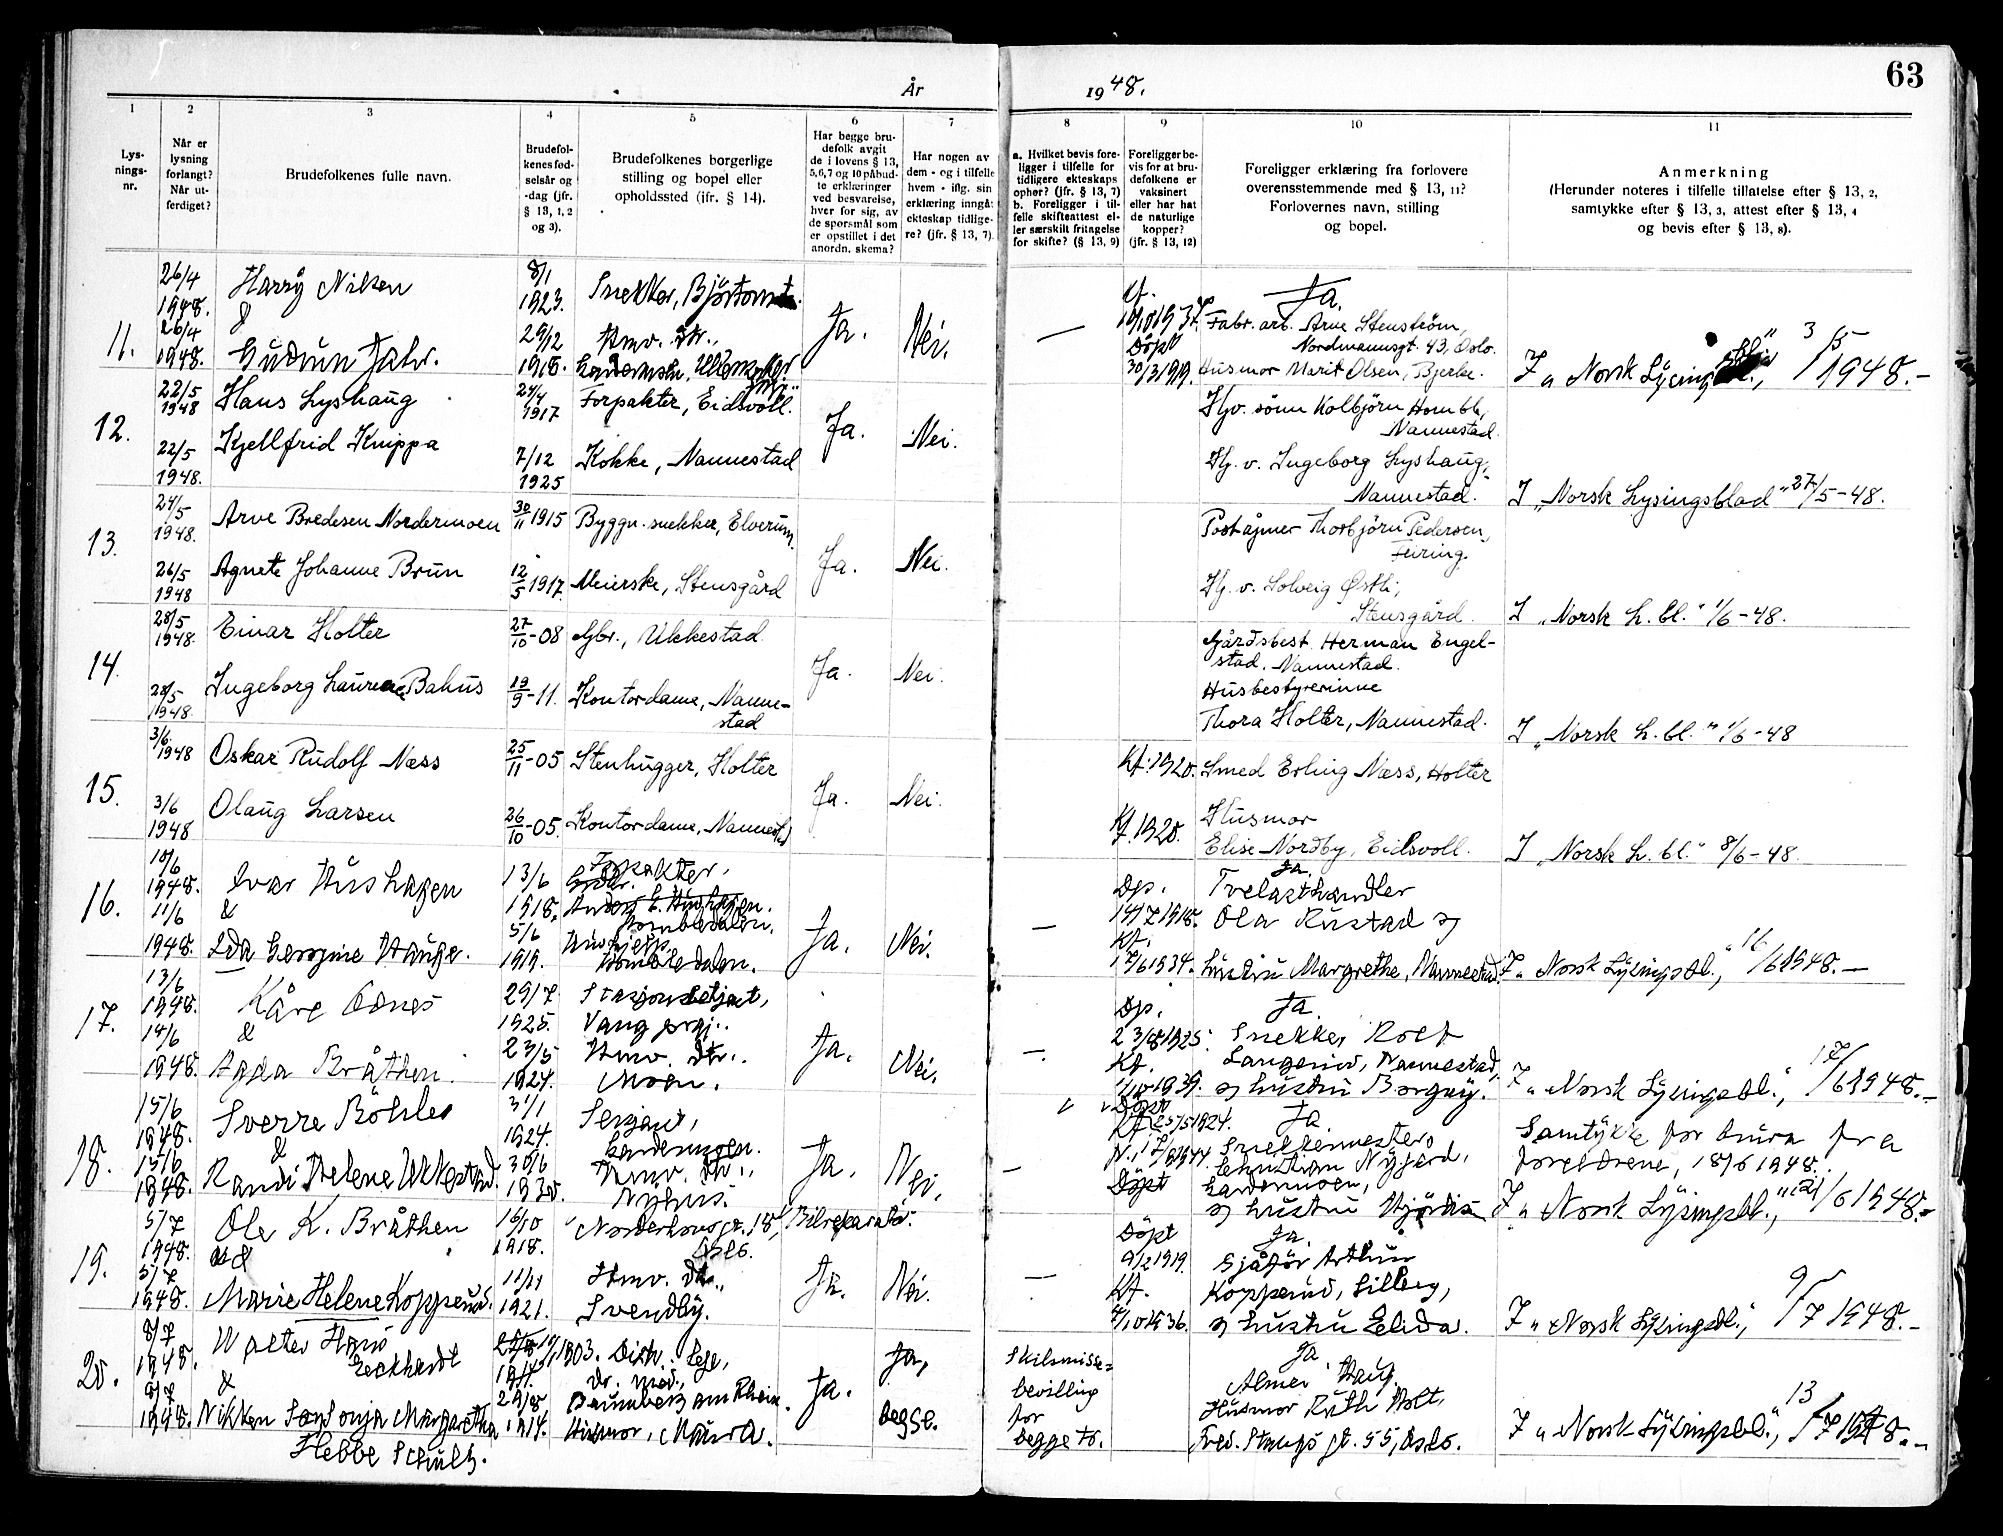 År 1948.
63
1 2 3 4 5 6 7 8 9 10 11
Lys-
nings-
nr.
Når er
lysning
forlangt?
Når ut-
ferdiget?
Brudefolkenes fulle navn.
Brudefol-
kenes fød-
selsår og
-dag (jfr.
§ 13, 1, 2
og 3).
Brudefolkenes borgerlige
stilling og bopel eller
opholdssted (jfr. § 14).
Har begge bru-
defolk avgit
de i lovens § 13,
5, 6, 7 og 10 påbud-
te erklæringer
ved besvarelse,
hver for sig, av
de spørsmål som
er opstillet i det
anordn. skema?
Har nogen av
dem - og i tilfelle
hvem - iflg. sin
erklæring inngåt
ekteskap tidlige-
re? (jfr. § 13, 7)
a. Hvilket bevis fore-
ligger i tilfelle for
tidligere ekteskaps
ophør? (jfr. § 13, 7)
b. Foreligger i til-
felle skifteattest el-
ler særskilt fritagelse
for skifte? (§ 13, 9)
Foreligger be-
vis for at bru-
defolkene er
vaksinert
eller har hat
de naturlige
kopper?
(jfr. § 13, 12)
Foreligger erklæring fra forlovere
overensstemmende med § 13, 11?
Forlovernes navn, stilling
og bopel.
Anmerkning
(Herunder noteres i tilfelle tillatelse efter § 13, 2,
samtykke efter § 13, 3, attest efter § 13, 4
og bevis efter § 13, 8).
11.
26/4
1948.
26/4
1948.
Harry Nilsen
&
Gudrun Jahr.
8/1
1923.
29/12
1918.
Snekker,
Hmv. Dtr.,
Ja.
Nei.
—
Kf.
Døpt
Ja.
Fabr. arb. Arve Stenström,
Nordmannsgt. 43, Oslo.
Husmor Marit Olsen, Bjerke.
I "Norsk Lysingsbl.", 3/5 1948.-
12.
22/5
1948
22/5
1948.
Hans Lyshaug
Kjellfrid Knippa
24/4
1917
7/12
1925
Forpakter, Eidsvoll.
Kokke, Nannestad
Ja.
Nei.
Gv. sönn Kolbjörn Homble,
Nannestad.
Hj. v. Ingeborg Lyshaug,
Nannestad.
I "Norsk Lysingsblad" 27/5-48.
13.
24/5
1948.
26/5
1948
Arve Bredesen Nordermoen
Agnete Johanne Brun
30/11 1915
12/5 1917.
Byggn. snekker, Elverum.
Meierske, Stensgård
Ja.
Nei.
Poståpner Thorbjörn Pedersen,
Feiring.
Hj. v. Solveig Østli,
Stensgård.
I "Norsk L. bl." 1/6-48.
14.
28/5
1948.
28/5
1948.
Einar Holter
Ingeborg Laurense Bahus
27/10-08
19/9-11.
Gbr., Ukkestad.
Kontordame, Nanne-
stad
Ja.
Nei.
Gårdsbest. Herman Engel-
stad, Nannestad.
Husbestyrerinne
Thora Holter, Nannestad.
I "Norsk L. bl." 1/6-48
15.
3/6
1948
3/6
1948
Oskar Rudolf Næss
Olaug Larsen
25/11-05
26/10-05.
Stenhugger, Holter
Kontordame, Nannestad
Ja.
Nei.
Kf. 1920.
Kf. 1920.
Smed Erling Næss, Holter
Husmor
Elise Nordby, Eidsvoll.
I "Norsk L. bl." 8/6-48.
16.
10/6
1948.
11/6
1948.
Ivar Hushagen
&
Eda Hauge.
13/6
1918,
5/6
1919.
Forpakter,
Hushjelp,
Ja.
Nei.
—
Dp.
14/7 1918.
Kf.
Ja.
Trelasthandler
Ola Rustad og
hustru Margrethe, Nannestad.
I "Norsk Lysingsbl.", 16/6 1948.—
17.
13/6
1948.
14/6
1948.
Kåre
&
Bråthen.
29/7
1925.
23/5
1924.
Stasjonsbetjent,
Hmv. Dtr.,
Moen.
Ja.
Nei.
—.
Dp.
Kf.
1/10 1939.
Ja.
Snekker Rolf
Nannestad,
og hustru Borgny.
I "Norsk Lysingsbl.", 17/6 1948.-
18.
15/6
1948.
15/6
1948.
Sverre Böhler
&
Randi Helene Ukkestad.
31/1
1924.
30/6
1930.
Sersjant,
Gardermoen.
Hmv. Dtr.,
Nyhus.
Ja.
Nei.
—
Døpt
25/5 1924.
Kf.
Døpt
Ja
Snekkermester
Christian Nygård,
Gardermoen,
og hustru Hjördis
Samtykke for brura fra
foreldrene, 18/6 1948.
I "Norsk Lysingsbl.", 21/6 1948.-
19.
5/7
1948.
5/7
1948.
Ole K. Bråthen
&
Marie Helene Kopperud.
16/10
1918.
11/11
1921.
Norderhovsgt. 18, Bilreparatör.
Oslo.
Hmv. Dtr.,
Svendby.
Ja.
Nei.
—
Døpt
9/2 1919.
Kf.
4/10 1936.
Ja.
Sjåför Arthur
Kopperud,
og hustru Elida.
I "Norsk Lysingsbl.", 9/7 1948.-
20.
8/7
1948.
9/7
1948.
Walter Hans
Eckhardt
&
Margaretha
Hebbe Schultz.
1903.
29/8,
1914.
Distr. lege,
Dr. med.,
am Rhein.
Husmor, Maura.
Ja.
Ja,
begge.
Skilsmisse-
bevilling
for
begge to.
Ja
Almer Haug.
Husmor Ruth Holt,
gt. 55, Oslo.
I "Norsk Lysingsbl.", 13/7 1948.-